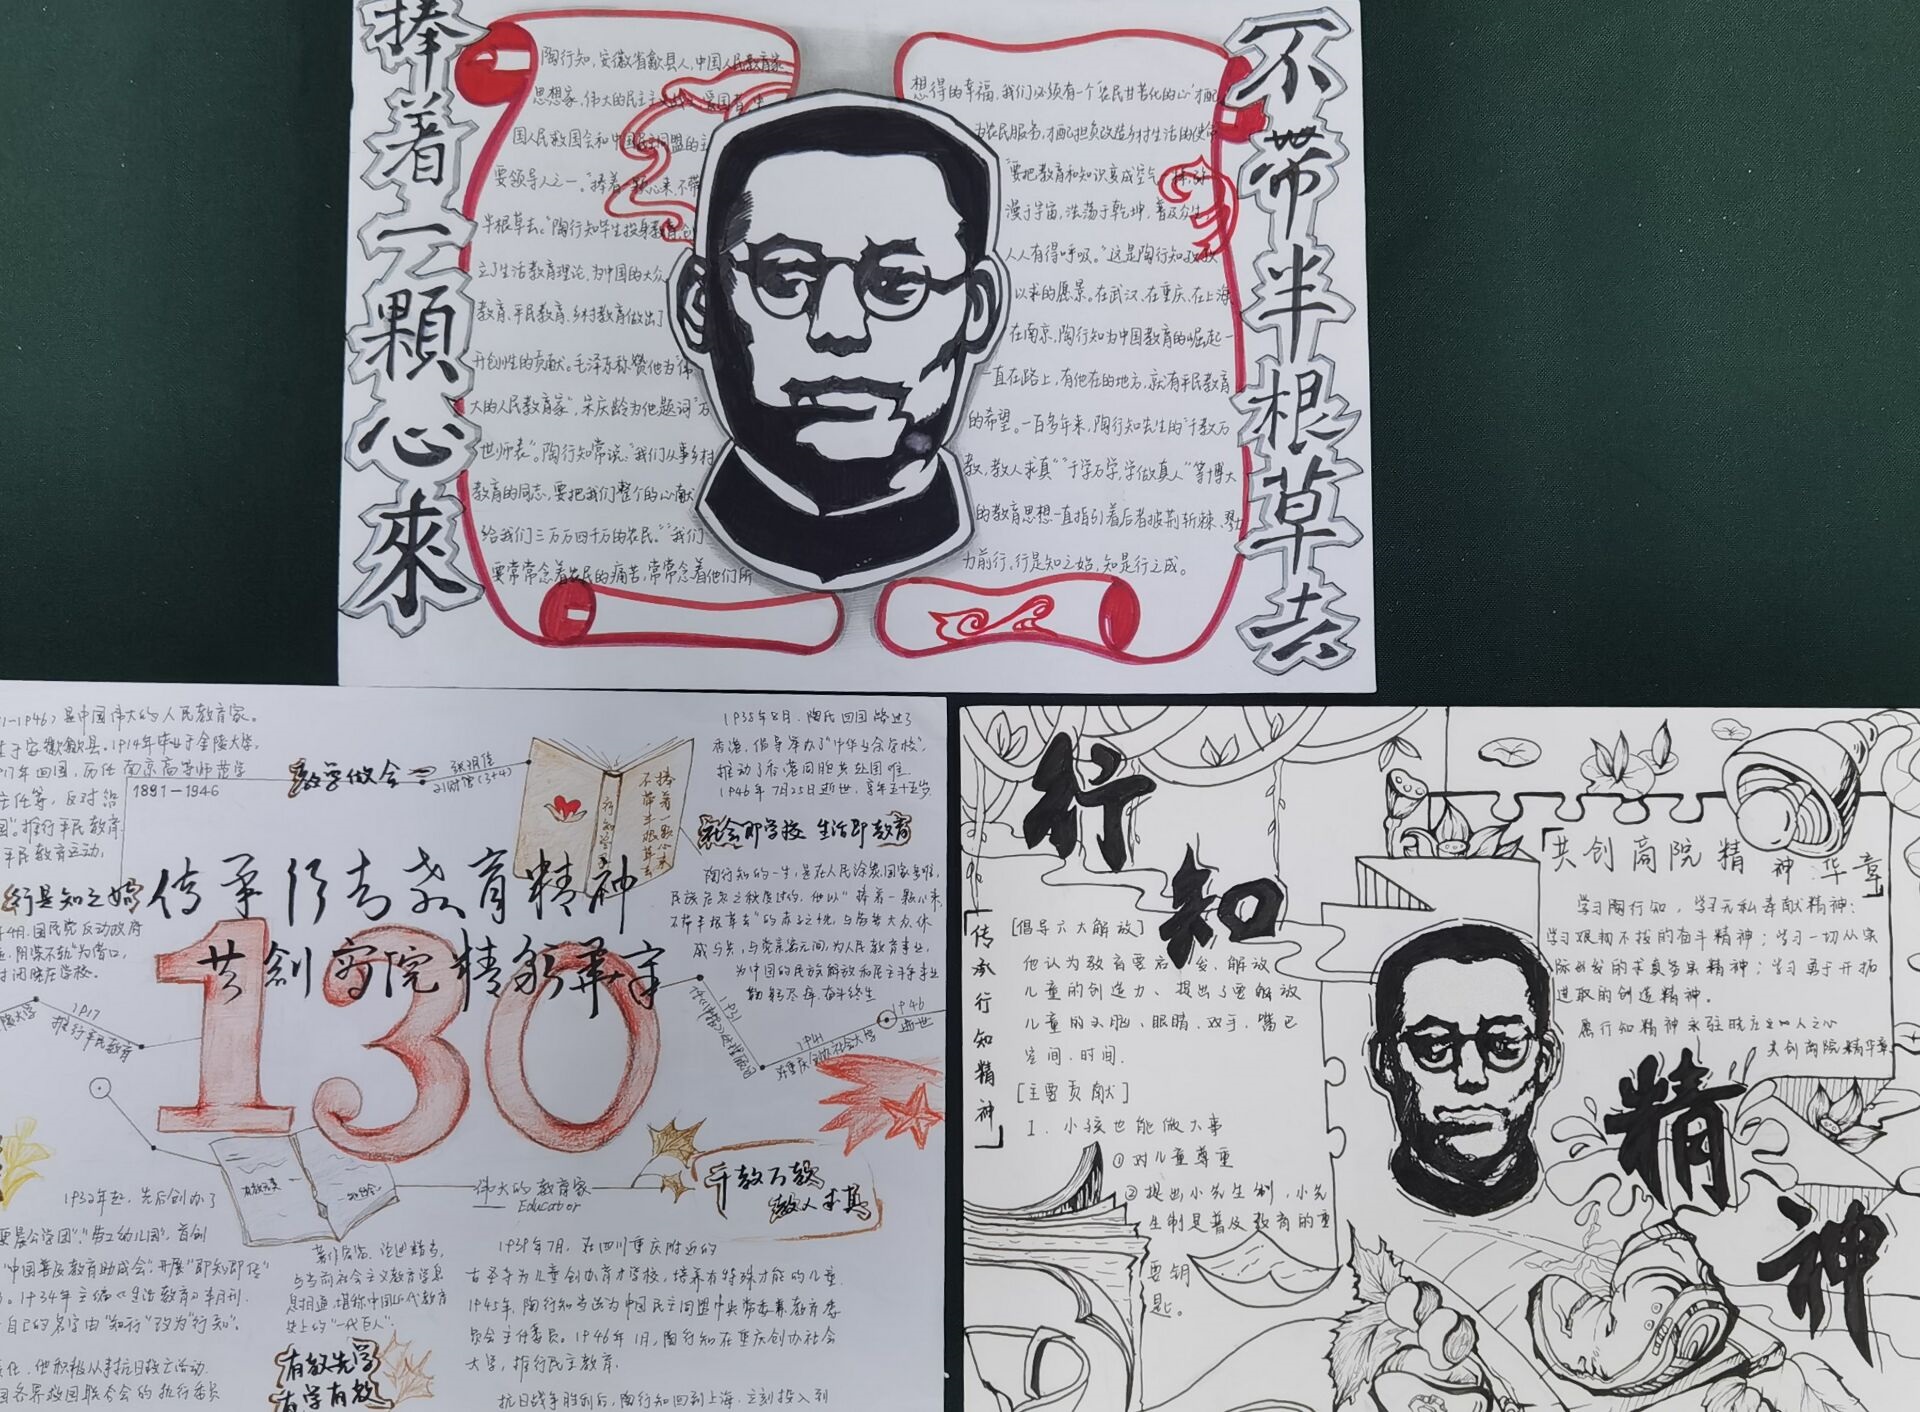 捧着一顆心來
不带半根草去
陶行知，安徽省歙县人，中国人民教育家
思想家，伟大的民主主义
国人民救国会和中国民主同盟的主
要领导人之一。"捧着一颗心来，不带
半根草去。"陶行知毕生投身教育，创
立了生活教育理论，为中国的大众
教育、平民教育、乡村教育做出了
开创性的贡献。毛泽东称赞他为"伟
大的人民教育家"，宋庆龄为他题词"万
世师表"。陶行知常说："我们从事乡村
教育的同志，要把我们整个的心献
给我们三万万四千万的农民。""我们
要常常念着农民的痛苦，常常念着他们所
想得的幸福，我们必须有一个"农民甘苦化的心"才配
为农民服务，才配担负改造乡村生活的使命
"要把教育和知识变成空气一样，弥
漫于宇宙，浩荡于乾坤，普及众生，
人人有得呼吸。"这是陶行知孜孜
以求的愿景。在武汉、在重庆、在上海、
在南京，陶行知为中国教育的崛起一
直在路上，有他在的地方，就有平民教育
的希望。一百多年来，陶行知先生的"千教万
教，教人求真""千学万学，学做真人"等博大
的教育思想一直指引着后者披荆斩棘、努
力前行。行是知之始，知是行之成。
1-1946）是中国伟大的人民教育家。
生于安徽歙县。1914年毕业于金陵大学，
17年回国，历任南京高等师范学
主任等，反对
国"。推行平民教育
平民教育运动，
1891-1946
教学做合一
捧着一颗心来
不带半根草去
1935年8月，陶氏回国路过了
香港，倡导举办了"中华业余学校"，
推动了香港同胞共赴国难
1946年7月25日逝世，享年五十五岁
社会即学校 生活即教育
陶行知的一生，是在人民涂炭，国家多难，
民族危急之秋度过的，他以"捧着一颗心来，
不带半根草去"的赤子之忱，与劳苦大众休
戚与共，与党亲密无间，为人民教育事业，
为中国的民族解放和民主斗争事业
鞠躬尽瘁，奋斗终生
行是知之始
传承行知教育精神
共創商院精彩華章
130
年4月，国民党反动政府
以"阴谋不轨"为借口，
封闭晓庄学校。
1917
推行平民教育
1931
1941
在重庆创办社会大学
1946
逝世
伟大的教育家
Educator
千教万教
教人求真
1932年起，先后创办了
"劳工幼儿园"，首创
"中国普及教育助成会"，开展"即知即传"
。1934年主编《生活教育》半月刊
自己的名字由"知行"改为"行知"。
他积极从事抗日救亡活动
国各界救国联合会的执行委员
著作宏富，论述精当，
与当前社会主义教育学息
息相通，堪称中国近代教育
史上的"一代巨人"。
有教先学
有学有教
1939年7月，在四川重庆附近的
古圣寺为儿童创办育才学校，培养有特殊才能的儿童
1945年，陶行知当选为中国民主同盟中央常委兼教育委
员会主任委员。1946年1月，陶行知在重庆创办社会
大学，推行民主教育
抗日战争胜利后，陶行知回到上海，立刻投入到
行知
精神
「传承行知精神」
[倡导六大解放]
他认为教育要启发、解放
儿童的创造力、提出了要解放
儿童的头脑、眼睛、双手、嘴巴
空间、时间.
[主要贡献]
1．小孩也能做大事
①对儿童尊重
②提出小先生制，小先
生制是普及教育的重
要钥
匙。
「共创商院精神华章」
学习陶行知，学习无私奉献精神；
学习艰韧不拔的奋斗精神；学习一切从实
际出发的求真务实精神；学习勇于开拓
进取的创造精神。
愿行知精神永驻
共创商院精华章